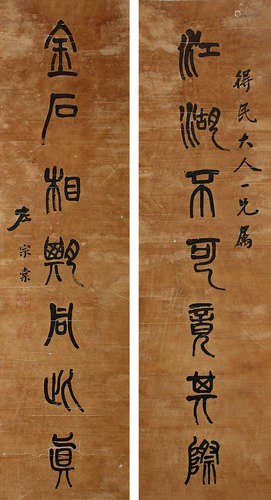 得民大人一兄属
江湖不可竟其際
金石相與同此眞
左宗棠